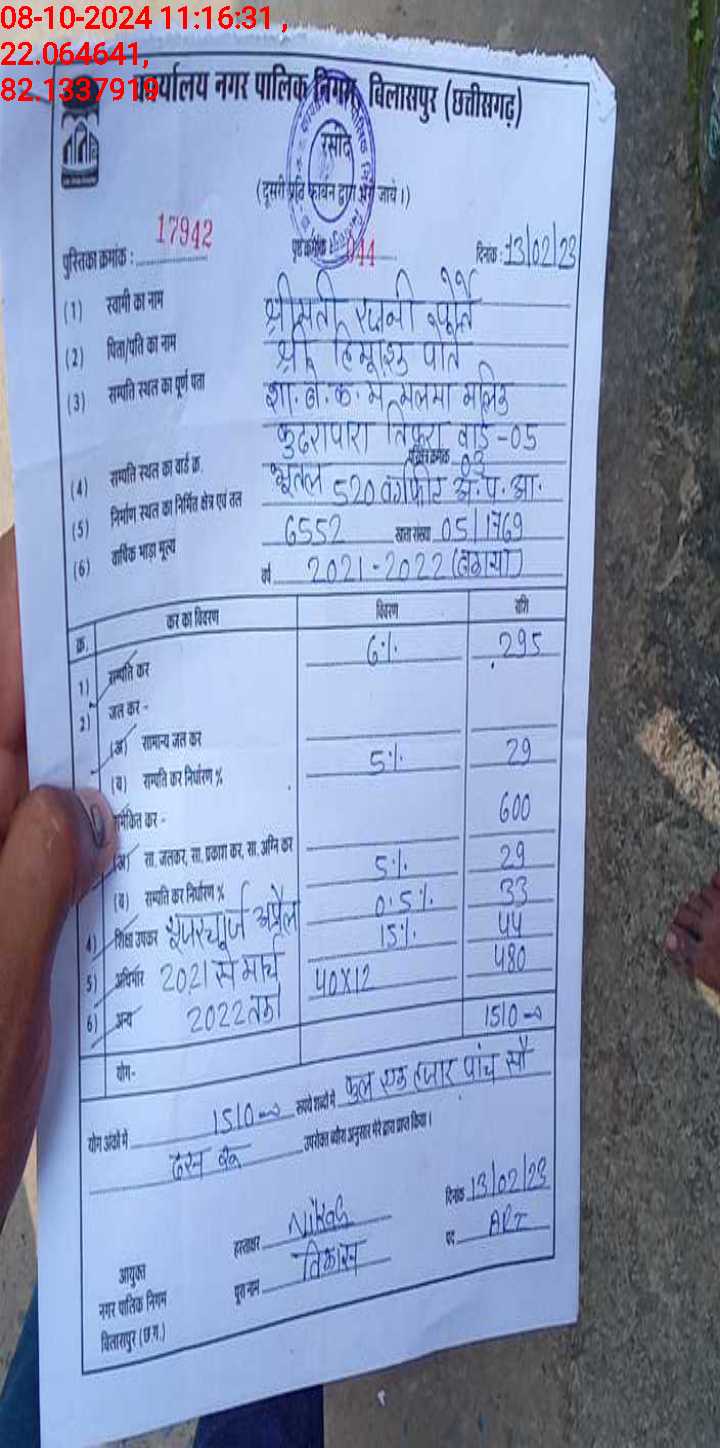 08-10-2024 11:16:31 ,
22.064641,
82.1337919
कार्यालय नगर पालिक निगम, बिलासपुर (छत्तीसगढ़)
रसीद
(दूसरी प्रति कार्बन द्वारा भरी जाये।)
पुस्तिका क्रमांक : 17942 पृष्ठ क्रमांक : 044 दिनांक : 13/02/23
(1) स्वामी का नाम श्रीमती
(2) पिता/पति का नाम श्री
(3) सम्पति स्थल का पूर्ण पता
कुदरापारा तिफरा वार्ड -05
(4) सम्पति स्थल का वार्ड क्र. 03
(5) निर्माण स्थल का निर्मित क्षेत्र एवं तल भूतल 520 वर्गफीट
(6) वार्षिक भाड़ा मूल्य 6552 05/1769
वर्ष 2021-2022 (बकाया)
क्र. कर का विवरण विवरण राशि
1) सम्पति कर 6% 295
2) जल कर -
(अ) सामान्य जल कर
(ब) सम्पति कर निर्धारण % 5% 29
समेकित कर - 600
(अ) सा. जलकर, सा. प्रकाश कर, सा. अग्नि कर
(ब) सम्पति कर निर्धारण % 5% 29
4) शिक्षा उपकर 0.5% 33
15% 44
5) अधिभार 40X12 480
6) अन्य
अप्रैल
2021 से मार्च
2022 तक
योग- 1510
योग अंकों में 1510 रूपये शब्दों में कुल एक हजार पांच सौ
दस रू उपरोक्त ब्यौरा अनुसार मेरे द्वारा प्राप्त किया।
दिनांक 13/02/23
हस्ताक्षर
पद ART
पूरा नाम विकास
आयुक्त
नगर पालिक निगम
बिलासपुर (छ.ग.)